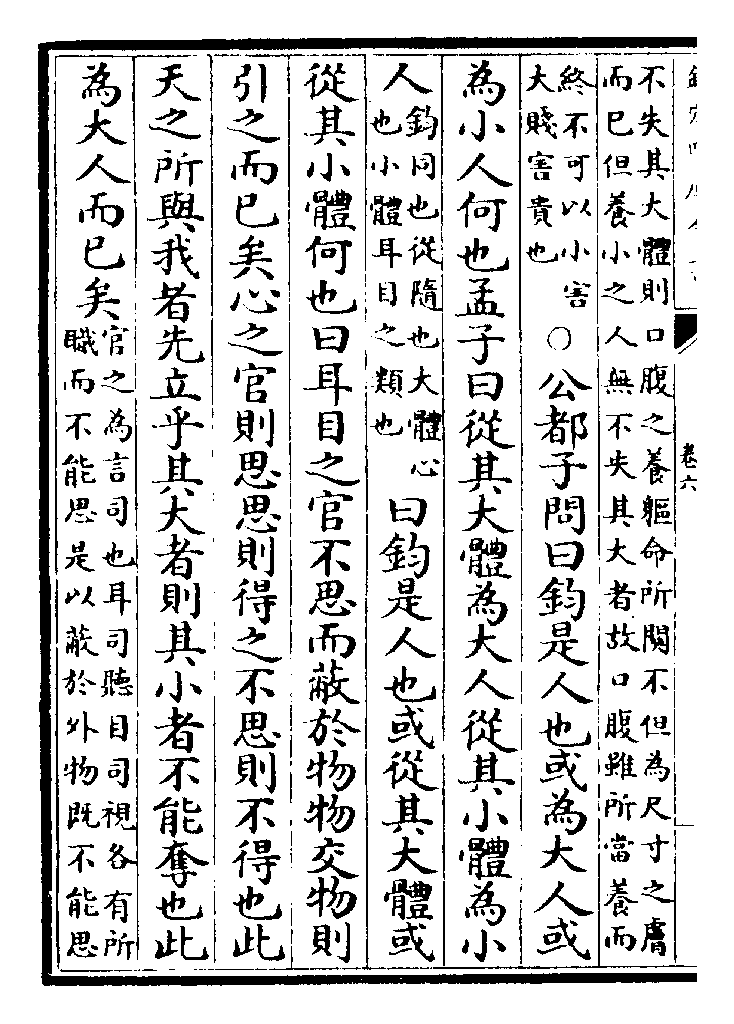 卷六
不失其大體則口腹之養軀命所闗不但為尺寸之膚
而已但養小之人無不失其大者故口腹雖所當養而
終不可以小害
大賤害貴也
○公都子問曰鈞是人也或為大人或
為小人何也孟子曰從其大體為大人從其小體為小
人
鈞同也從隨也大體心
也小體耳目之類也
曰鈞是人也或從其大體或
從其小體何也曰耳目之官不思而蔽於物物交物則
引之而已矣心之官則思思則得之不思則不得也此
天之所與我者先立乎其大者則其小者不能奪也此
為大人而已矣
官之為言司也耳司聽目司視各有所
職而不能思是以蔽於外物既不能思